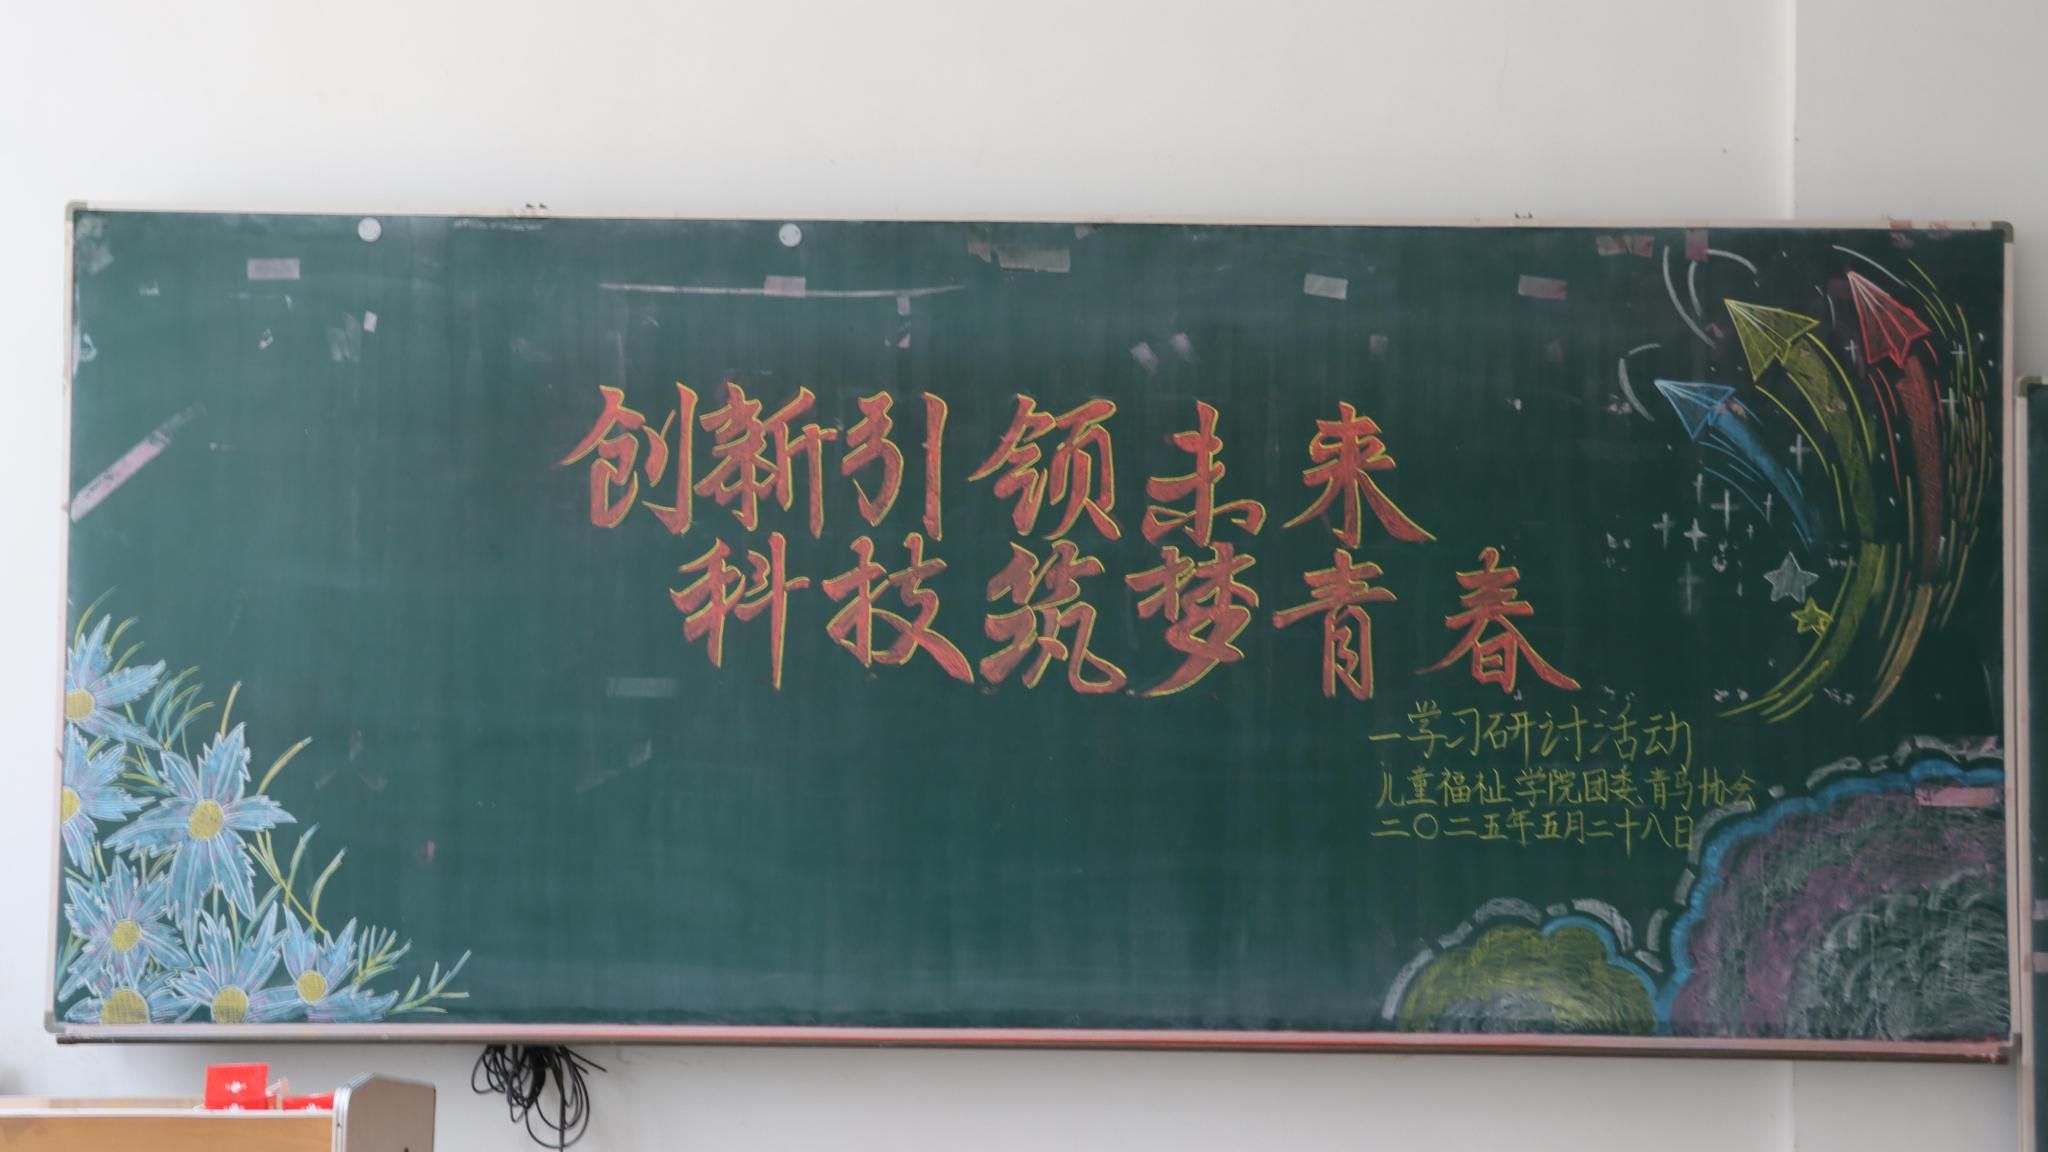 创新引领未来
科技筑梦青春
一学习研讨活动
儿童福祉学院团委、青马协会
二〇二五年五月二十八日